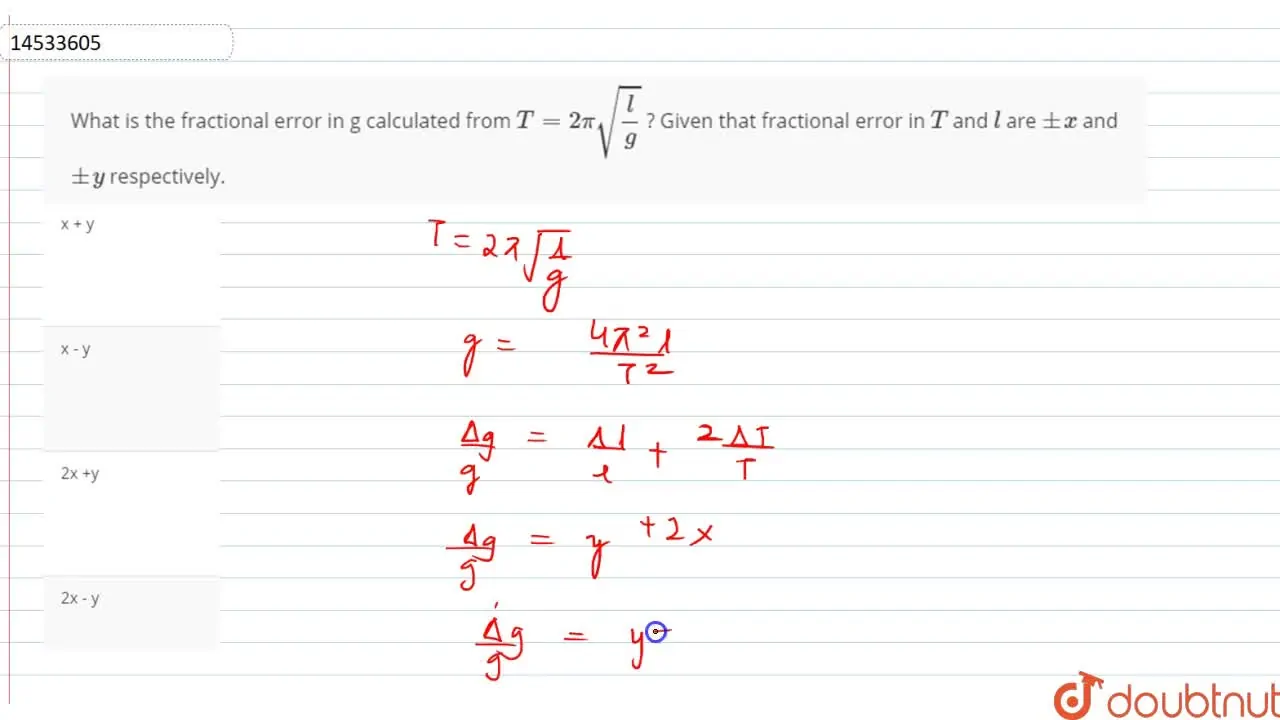 14533605
What is the fractional error in g calculated from T = 2π√(l/g) ? Given that fractional error in T and l are ±x and
±y respectively.
x + y
x - y
2x +y
2x - y
T = 2π√(l/g)
g = 4π²l/T²
Δg/g = Δl/l + 2ΔT/T
Δg/g = y + 2x
Δg/g = y
doubtnut